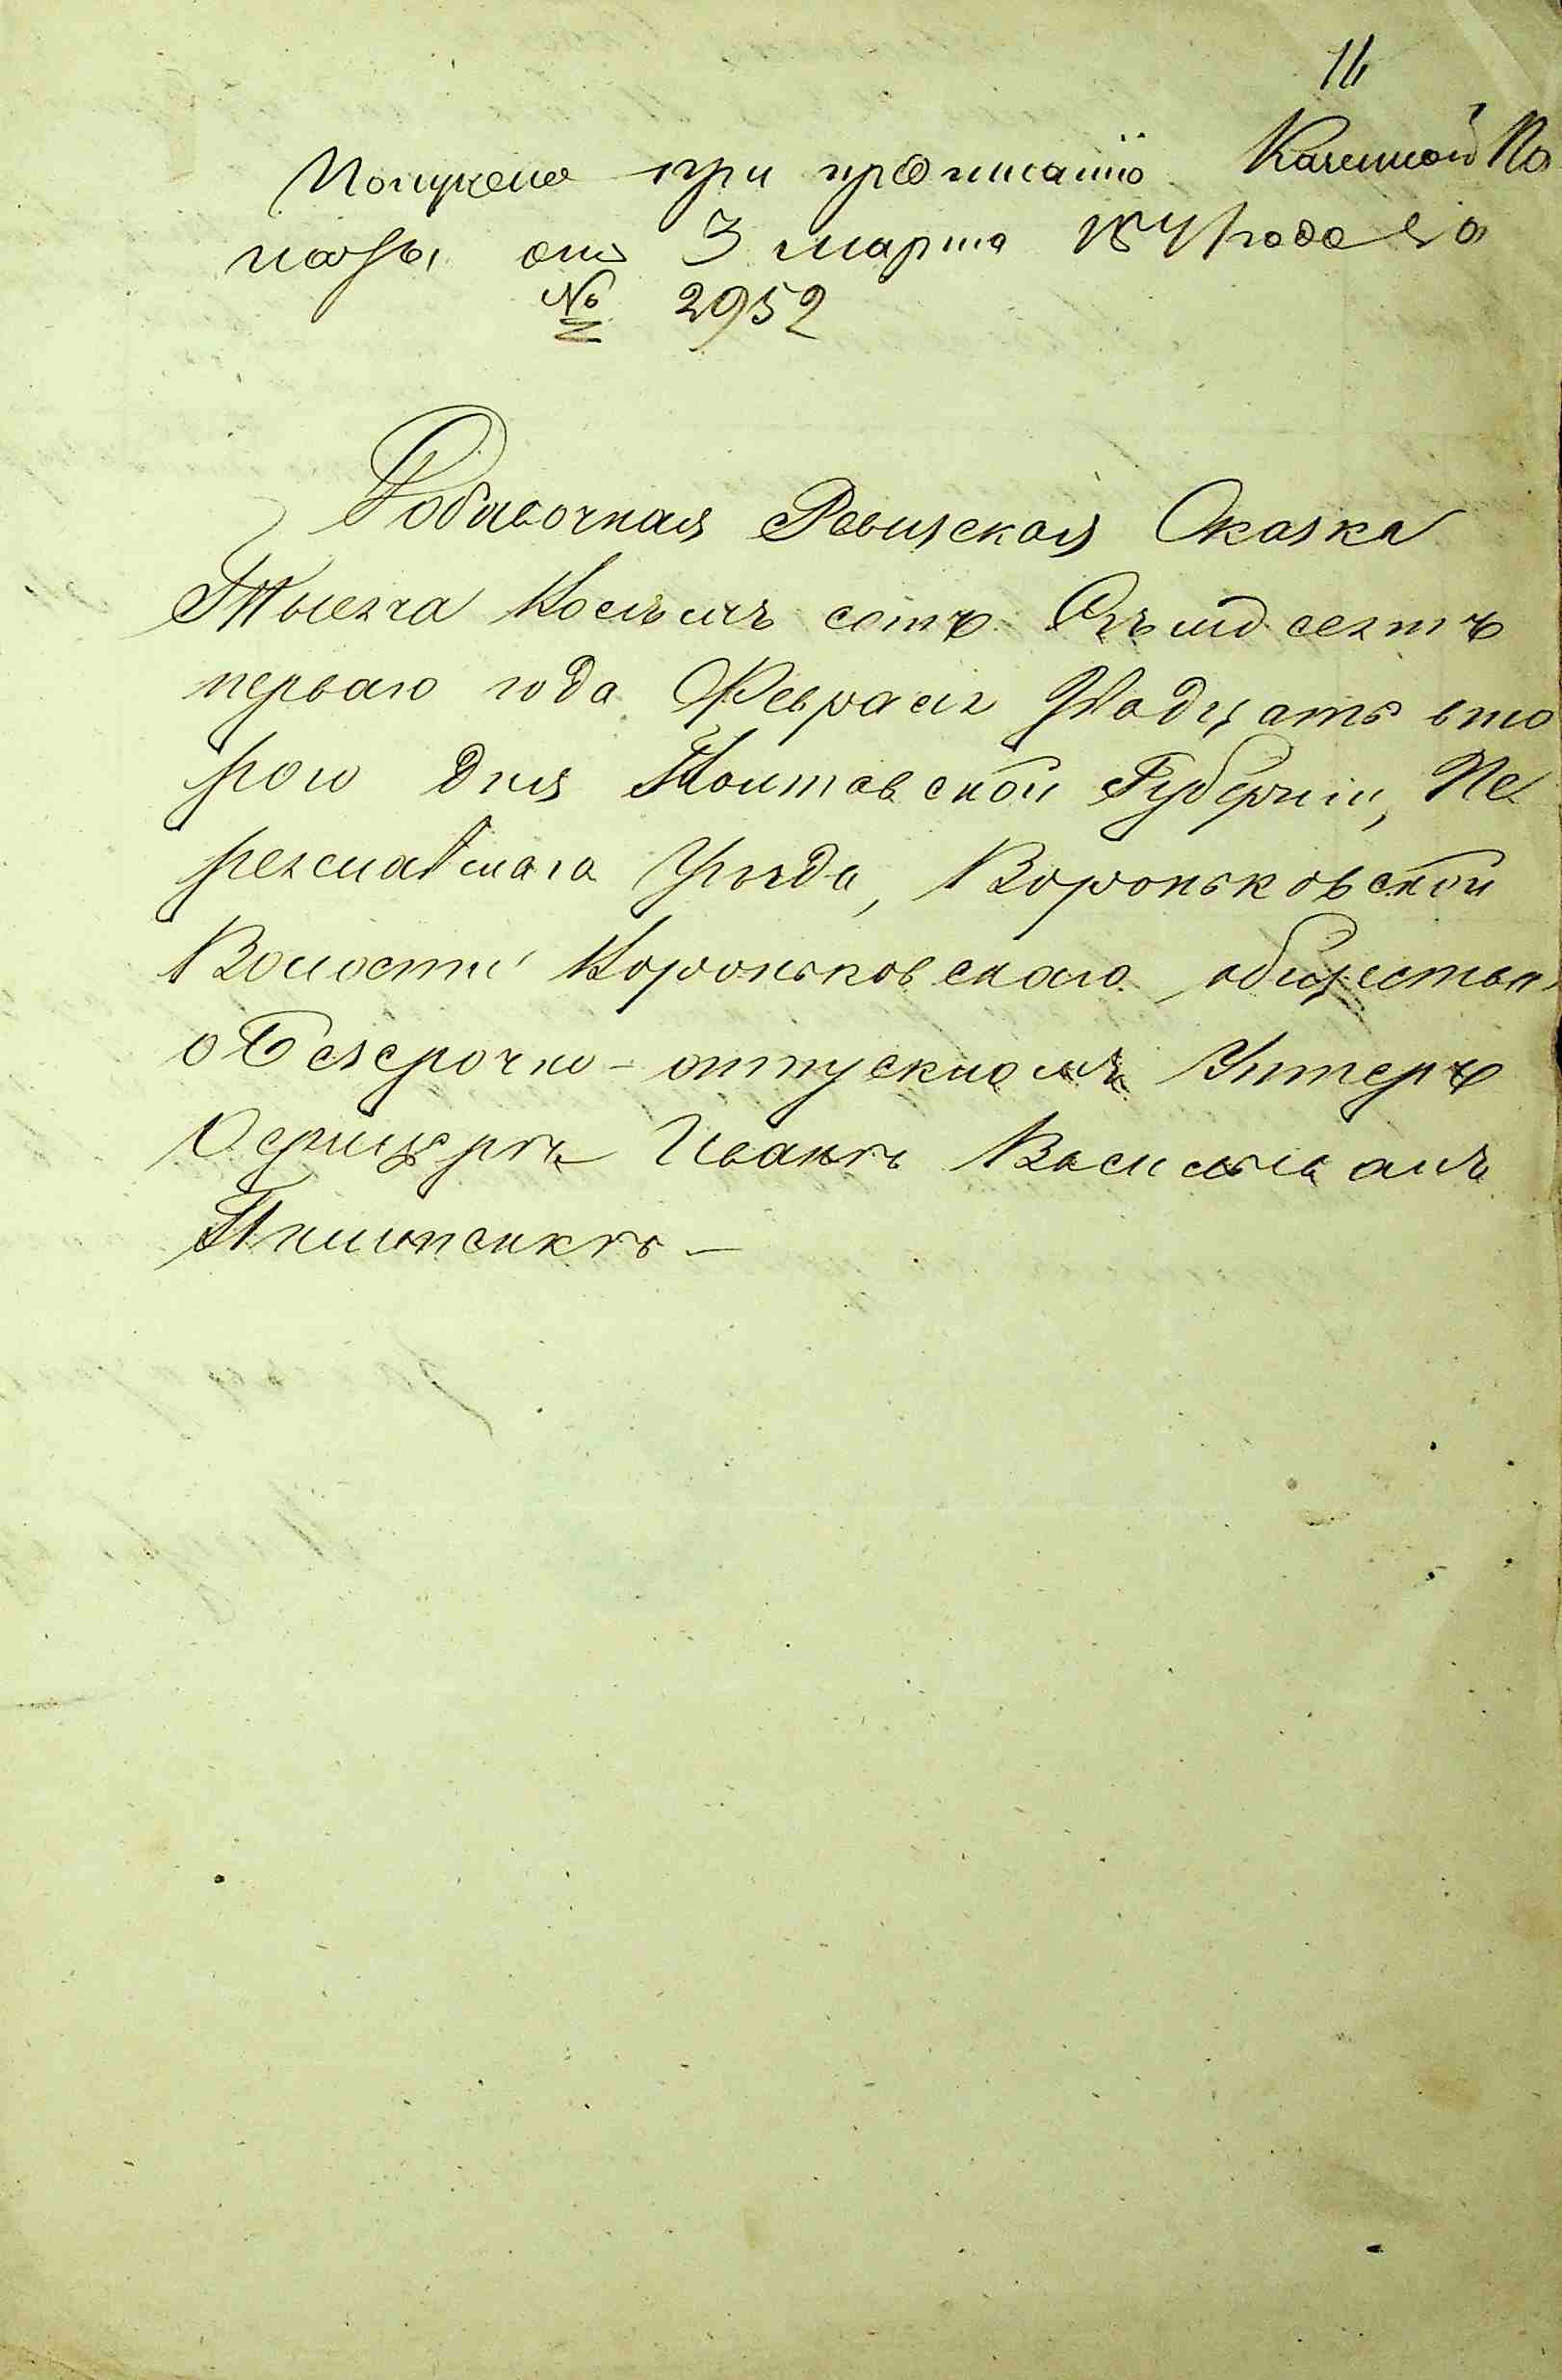 16
Получена при предписанiю Казенной Па
латы отъ 3 марта 1871 года за
№ 2952
Добавочная Ревизская Сказка
Тысяча Восемъ сотъ Семдесятъ
перваго года Февраля Двадцать вто
рого дня Полтавской Губернiи, Пе
реяславскаго Уезда, Вороньковской
Волости Вороньковскаго общества
о Безсрочно-отпускномъ Унтеръ
Офицеръ Иванъ Васильевъ